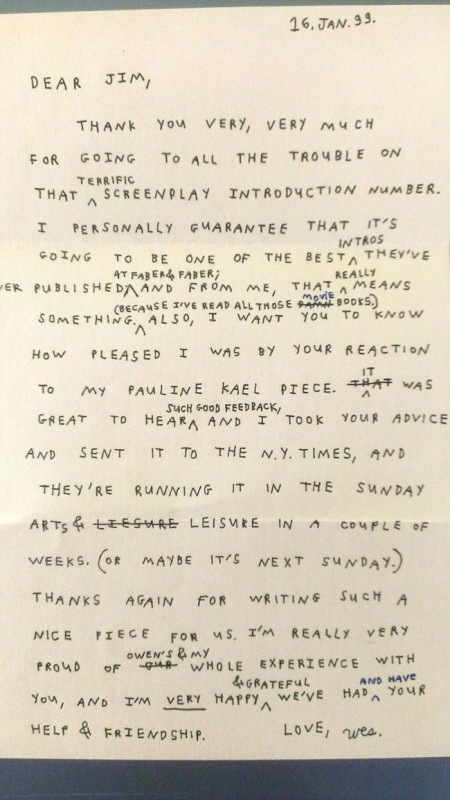 16, JAN. 99.
DEAR JIM,
THANK YOU VERY, VERY MUCH
FOR GOING TO ALL THE TROUBLE ON
TERRIFIC
THAT ^ SCREENPLAY INTRODUCTION NUMBER.
I PERSONALLY GUARANTEE THAT IT'S
INTROS
GOING TO BE ONE OF THE BEST ^ THEY'VE
AT FABER & FABER; REALLY
VER PUBLISHED ^ AND FROM ME, THAT ^ MEANS
(BECAUSE I'VE READ ALL THOSE MOVIE DAMN BOOKS.)
SOMETHING. ^ ALSO, I WANT YOU TO KNOW
HOW PLEASED I WAS BY YOUR REACTION
IT
TO MY PAULINE KAEL PIECE. THAT ^ WAS
SUCH GOOD FEEDBACK,
GREAT TO HEAR ^ AND I TOOK YOUR ADVICE
AND SENT IT TO THE N.Y. TIMES, AND
THEY'RE RUNNING IT IN THE SUNDAY
ARTS & LIESURE LEISURE IN A COUPLE OF
WEEKS. (OR MAYBE IT'S NEXT SUNDAY.)
THANKS AGAIN FOR WRITING SUCH A
NICE PIECE FOR US. I'M REALLY VERY
OWEN'S & MY
PROUD OF OUR WHOLE EXPERIENCE WITH
& GRATEFUL AND HAVE
YOU, AND I'M VERY HAPPY ^ WE'VE HAD ^ YOUR
HELP & FRIENDSHIP. LOVE, Wes.